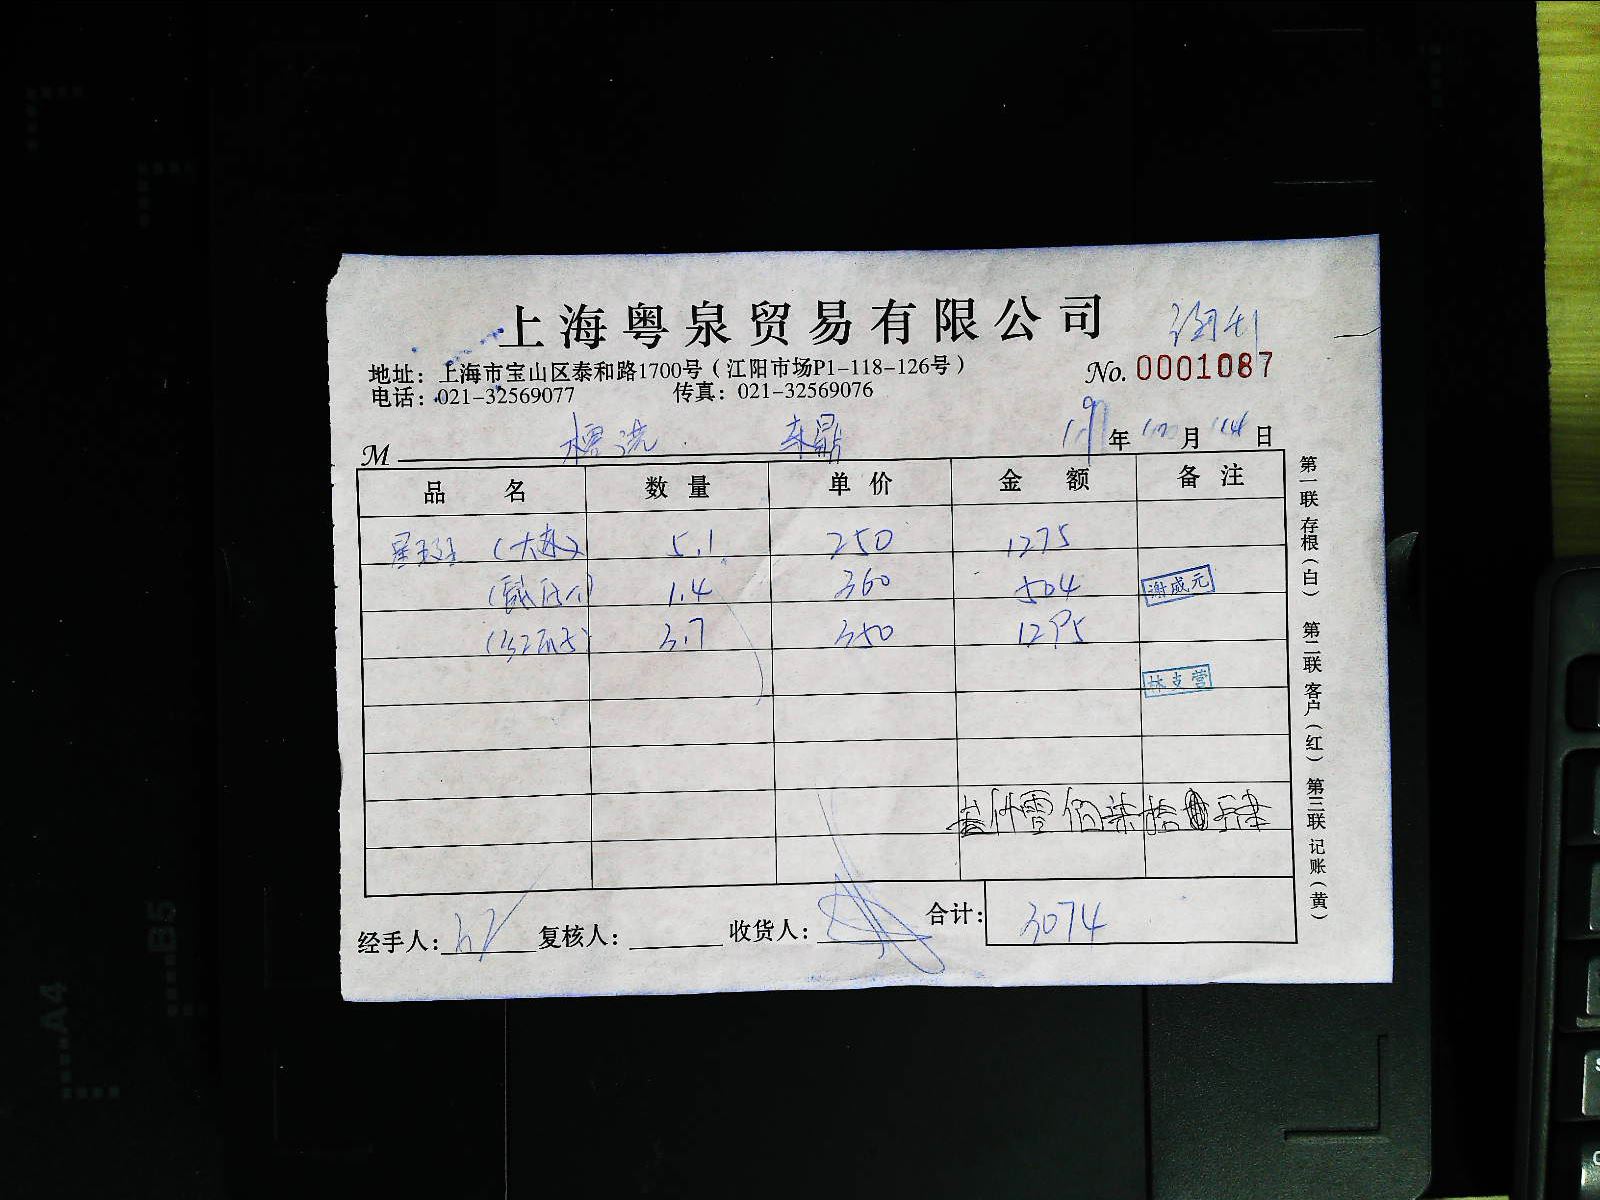 上海粤泉贸易有限公司
地址：上海市宝山区泰和路1700号（江阳市场P1-118-126号）
No. 0001087
电话：021-32569077 传真：021-32569076
M 年 月 日
品名 数量 单价 金额 备注
星斑 5.1 250 1275
1.4 360 504 谢成元
3.7 350 1295
林支营
叁仟零佰柒拾 元肆
经手人： 复核人： 收货人： 合计： 3074
第一联 存根（白） 第二联 客户（红） 第三联 记账（黄）
A4
B5